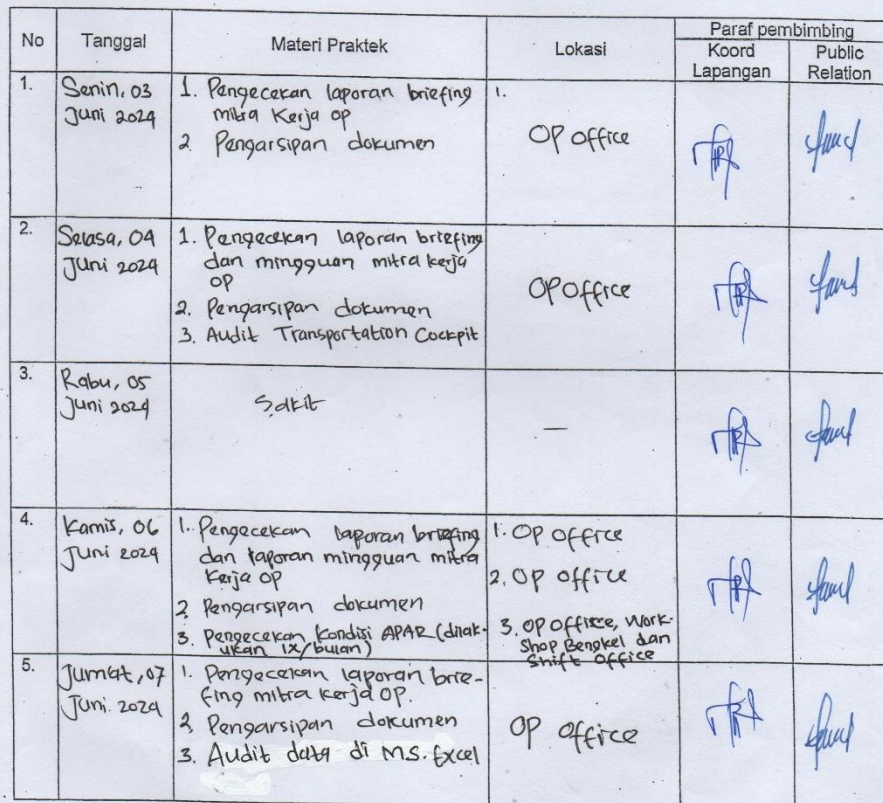 No Tanggal Materi Praktek Lokasi Paraf pembimbing
Koord Lapangan Public Relation
1. Senin, 03 Juni 2024
1. Pengecekan laporan briefing
mitra Kerja OP
2 Pengarsipan dokumen
1.
OP Office
2. Selasa, 04 Juni 2024
1. Pengecekan laporan briefing
dan mingguan mitra kerja
OP
2. Pengarsipan dokumen
3. Audit Transportation Cockpit
OP Office
3. Rabu, 05 Juni 2024
Sakit
—
4. Kamis, 06 Juni 2024
1. Pengecekan laporan briefing
dan laporan mingguan mitra
Kerja OP
2 Pengarsipan dokumen
3. Pengecekan Kondisi APAR (dilak-
ukan 1x/bulan)
1. OP Office
2. OP Office
3. OP Office, Work-
Shop Bengkel dan
Shift Office
5. Jumat, 07 Juni. 2024
1. Pengecekan laporan brie-
fing mitra kerja OP.
2 Pengarsipan dokumen
3. Audit data di M.S. Excel
OP Office